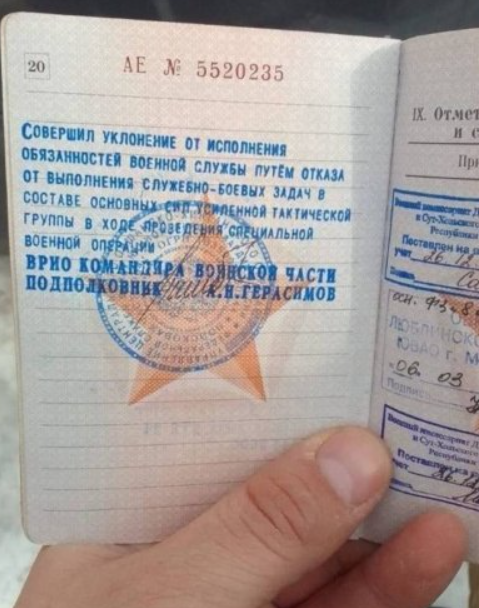 20
АЕ № 5520235
СОВЕРШИЛ УКЛОНЕНИЕ ОТ ИСПОЛНЕНИЯ
ОБЯЗАННОСТЕЙ ВОЕННОЙ СЛУЖБЫ ПУТЁМ ОТКАЗА
ОТ ВЫПОЛНЕНИЯ СЛУЖЕБНО-БОЕВЫХ ЗАДАЧ В
СОСТАВЕ ОСНОВНЫХ СИЛ УСИЛЕННОЙ ТАКТИЧЕСКОЙ
ГРУППЫ В ХОДЕ ПРОВЕДЕНИЯ СПЕЦИАЛЬНОЙ
ВОЕННОЙ ОПЕРАЦИИ
ВРИО КОМАНДИРА ВОИНСКОЙ ЧАСТИ
ПОДПОЛКОВНИК А.Н.ГЕРАСИМОВ
IX. Отмет
и с
При
Военный комиссариат
в Сут-Хольск
Республики
Поставлен на
учет 26.12
ЛЮБЛИНСКО
ЮВАО г. М
06. 03
Подпис
Военный комиссариат
в Сут-Хольск
Республики
Поставлен на